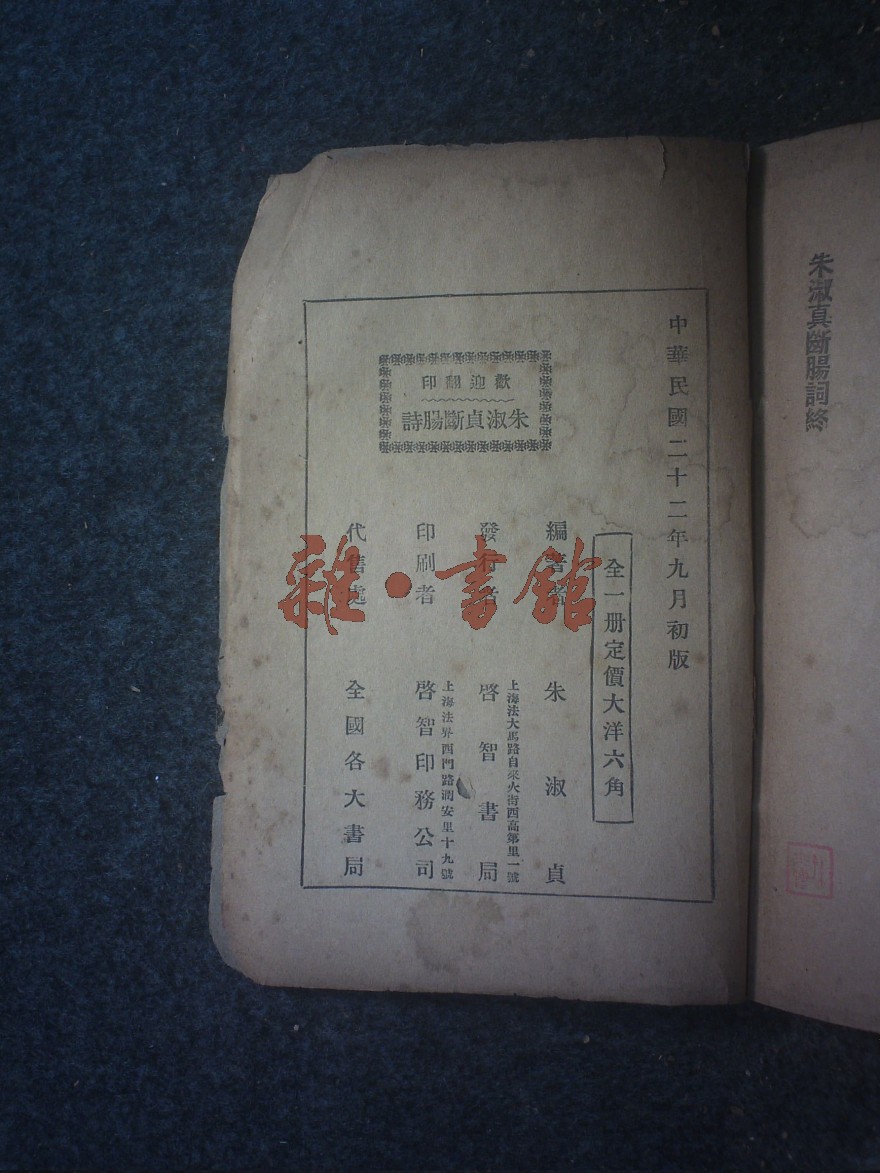 朱淑真斷腸詞終
中華民國二十二年九月初版
全一册定價大洋六角
編著者 朱淑貞
發行者 啓智書局
上海法大馬路自來火街西高第里一號
印刷者 啓智印務公司
上海法界西門路潤安里十九號
代售處 全國各大書局
歡迎翻印
朱淑貞斷腸詩
雜·書館